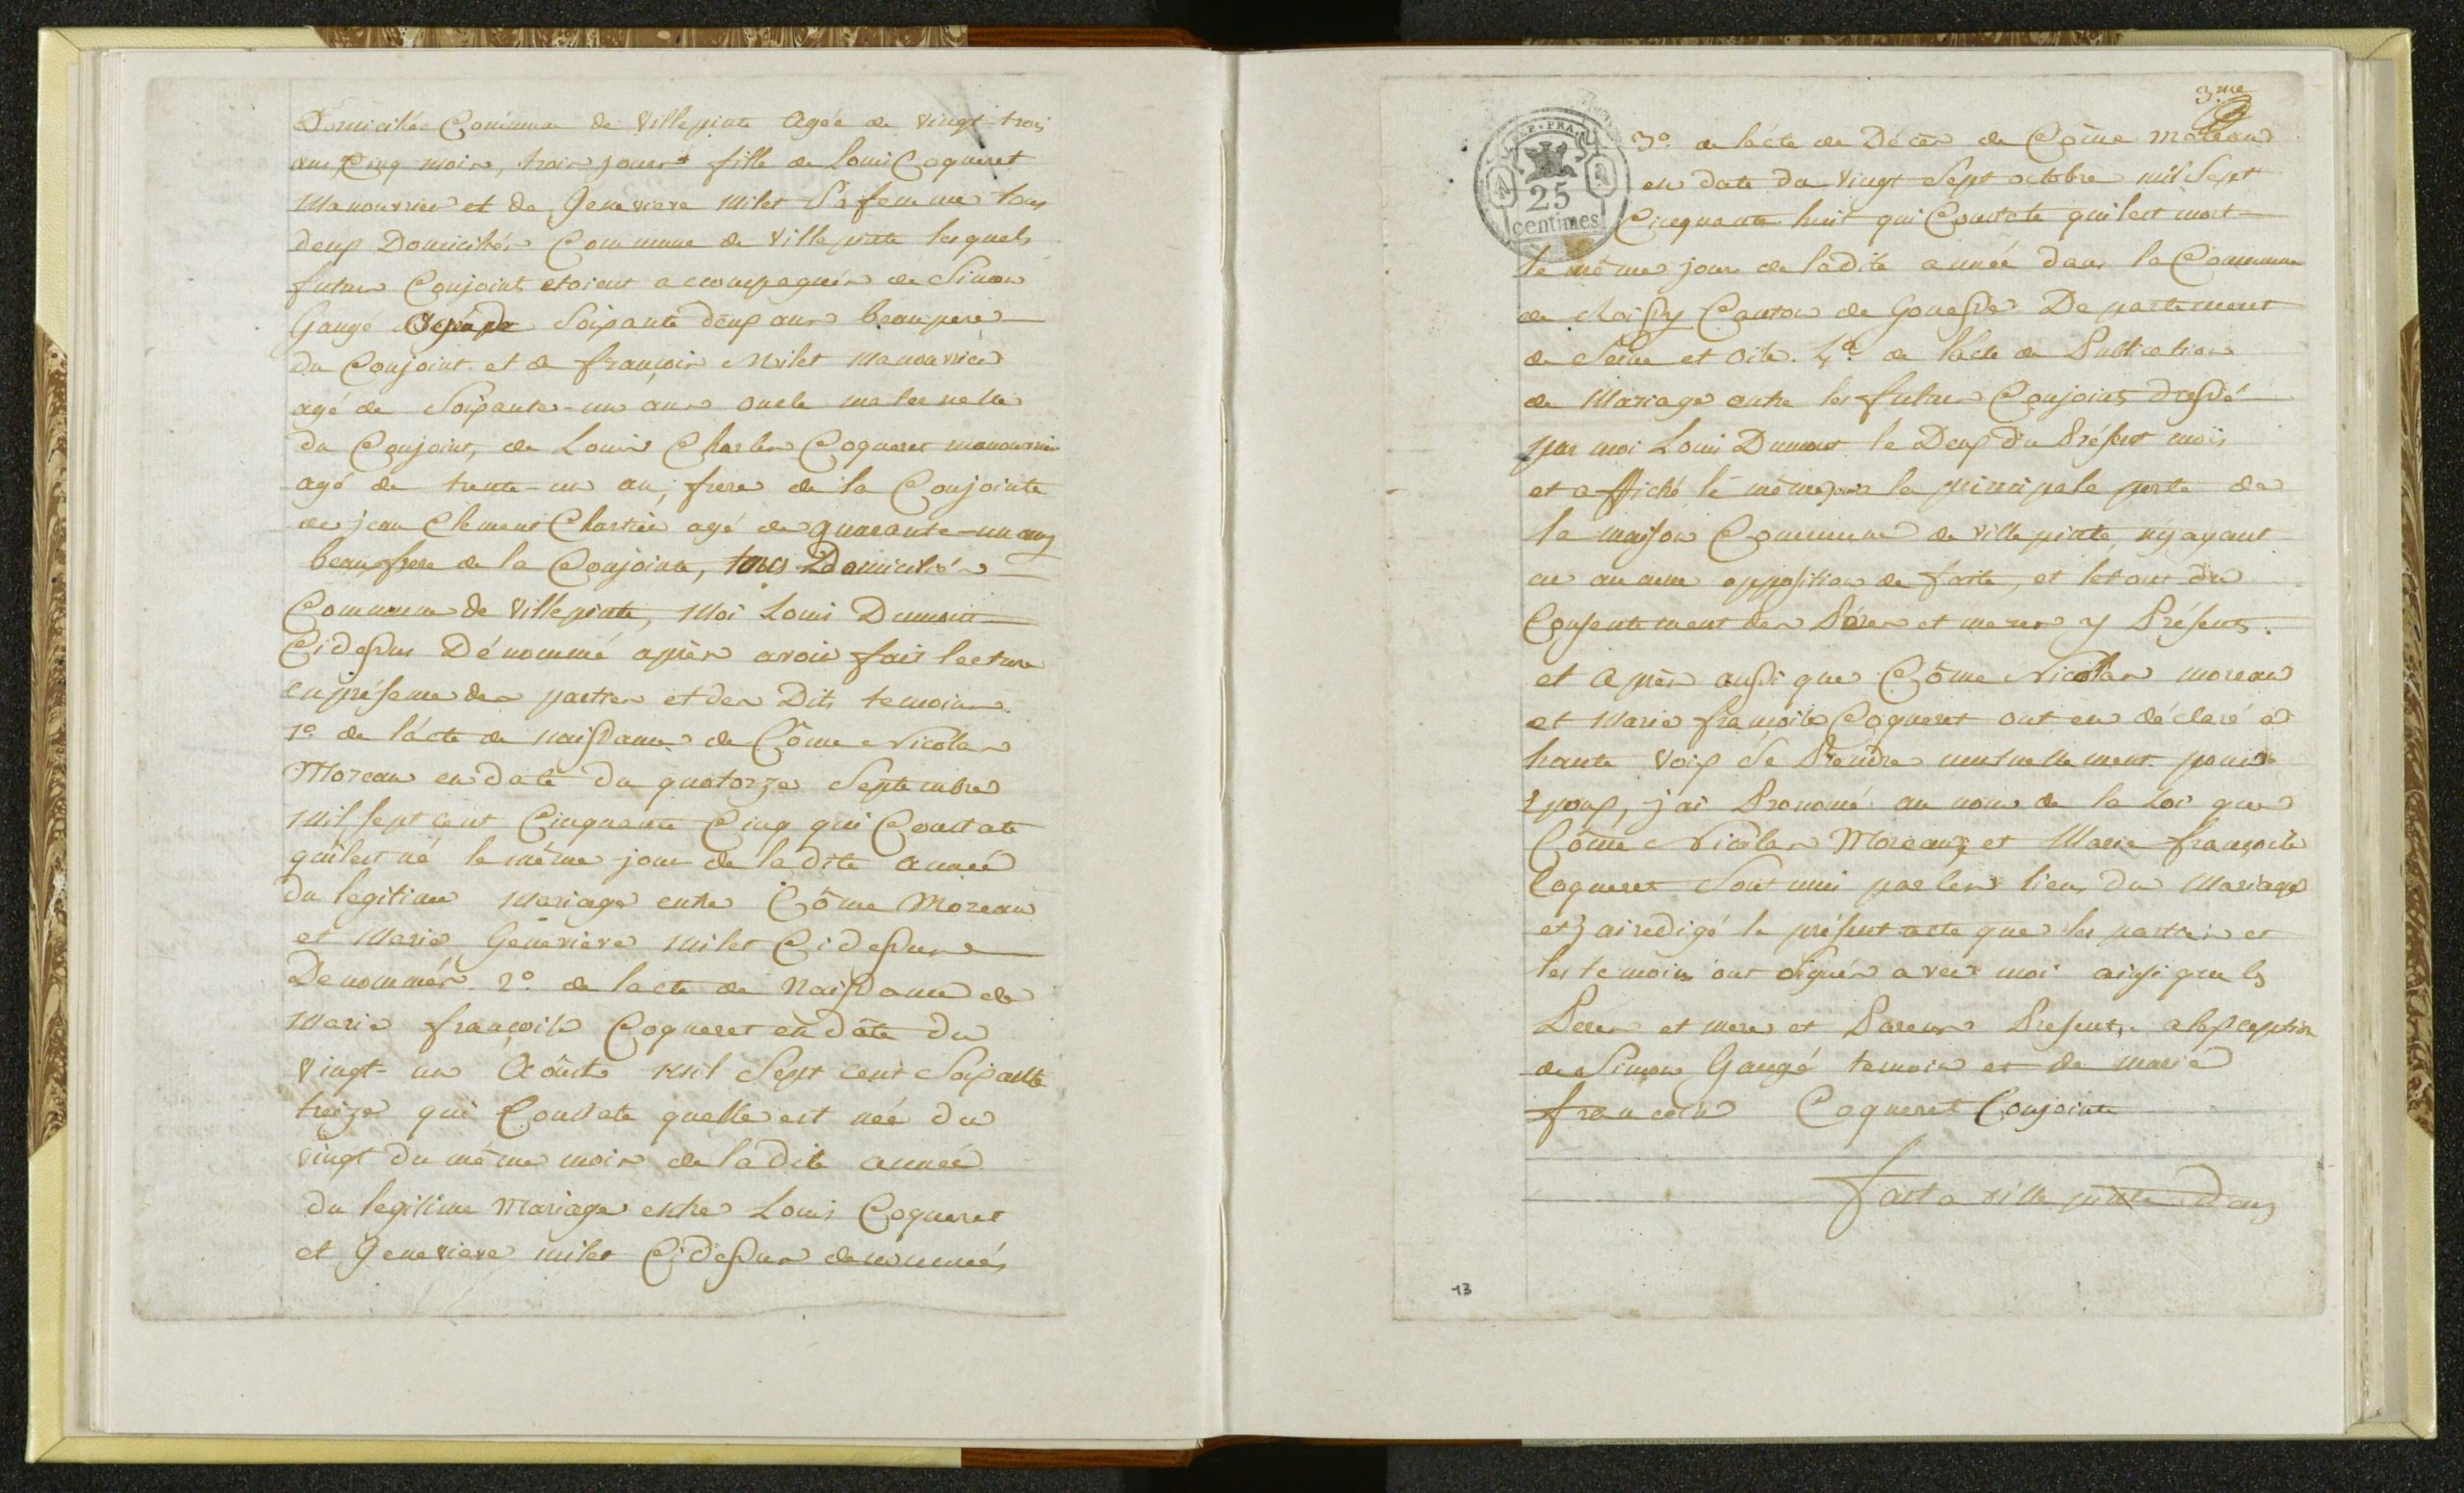 Domiciliée Commune de Villepinte Agée de vingt-trois
ans Cinq mois, trois jours fille de Louis Coqueret
Manouvrier et de Genevieve Milet Sa femme tous
deux Domiciliés Commune de Villepinte lesquels
futurs Conjoints etoient accompagnés de Simon
Gangé Agé de Soixante deux ans beaupere
du Conjoint et de françois Milet Manouvrier
agé de Soixante-un ans oncle maternelle
du Conjoint, de Louis Charles Coqueret manouvrier
agé de trente-un an, frere de la Conjointe
de jean Clement Chartier agé de quarante-un ans
beaufrere de la Conjointe, tous Domiciliés
Commune de Villepinte, Moi Louis Dumont
Cidessus Dénommé après avoir fait lecture
en présence des parties et des Dits temoins.
1º de l'acte de naissance de Côme Nicolas
Moreau en date du quatorze Septembre
mil sept cent Cinquante Cinq qui Constate
quil est né le même jour de ladite année
du legitime Mariage entre Côme Moreau
et Marie Genevieve Milet Cidessus
Denommés 2º de lacte de Naissance de
Marie françoise Coqueret en date du
vingt-un Août mil Sept cent Soixante
treize qui Constate quelle est née du
vingt du même mois de ladite année
du legitime Mariage entre Louis Coqueret
et Genevieve milet Cidessus denommés
3me
REP. FRA.
25
centimes
3º de lácte de Décès de Côme Moreau
en date du vingt Sept octobre mil Sept
Cinquante huit qui Constate quil est mort
le même jour de ladite année dans la Commune
de Roissy Canton de Gonesse Departement
de Seine et Oise. 4º de l'acte de Publication
de Mariage entre les futurs Conjoints dressé
par moi Louis Dumont le Deux du Présent mois
et affiché le même jour la principale porte de
la maison Commune de Villepinte, ny ayant
eu aucune opposition de faite, et letout du
Consentement des Péres et meres y Présents.
et Après aussi que Côme Nicolas moreau
et Marie françoise Coqueret ont eu déclaré à
haute Voix Se Prendre mutuellement pour
Epoux, j'ai Prononcé au nom de la Loi que
Côme Nicolas Moreau, et Marie françoise
Coqueret Sont unis par les liens du Mariage
et j'ai redigé le présent acte que les parties et
les temoins ont Signés avec moi ainsi que les
Peres et mere et Parens Présents, a lexception
de Simon Gangé temoin et de marie
francoise Coqueret Conjointe
fait a villepinte Dans
13